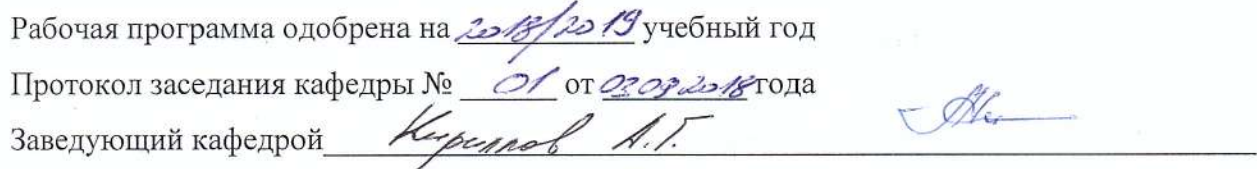 Рабочая программа одобрена на 2018/2019 учебный год
Протокол заседания кафедры № 01 от 03.09.2018 года
Заведующий кафедрой Кириллов А.Г.